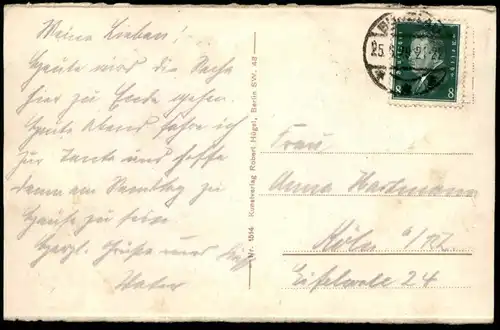 Meine Lieben!
Heute wird die Sache
hier zu Ende gehn.
Heute Abend fahre ich
zur Tante und hoffe
dann am Samstag zu
Hause zu sein
Herzl. Grüße und Kuß
Vater
Nr. 1514 Kunstverlag Robert Hügel, Berlin SW. 48
25.
8 8
Frau
Anna Hartmann
Köln a/Rh.
Eifelwall 24